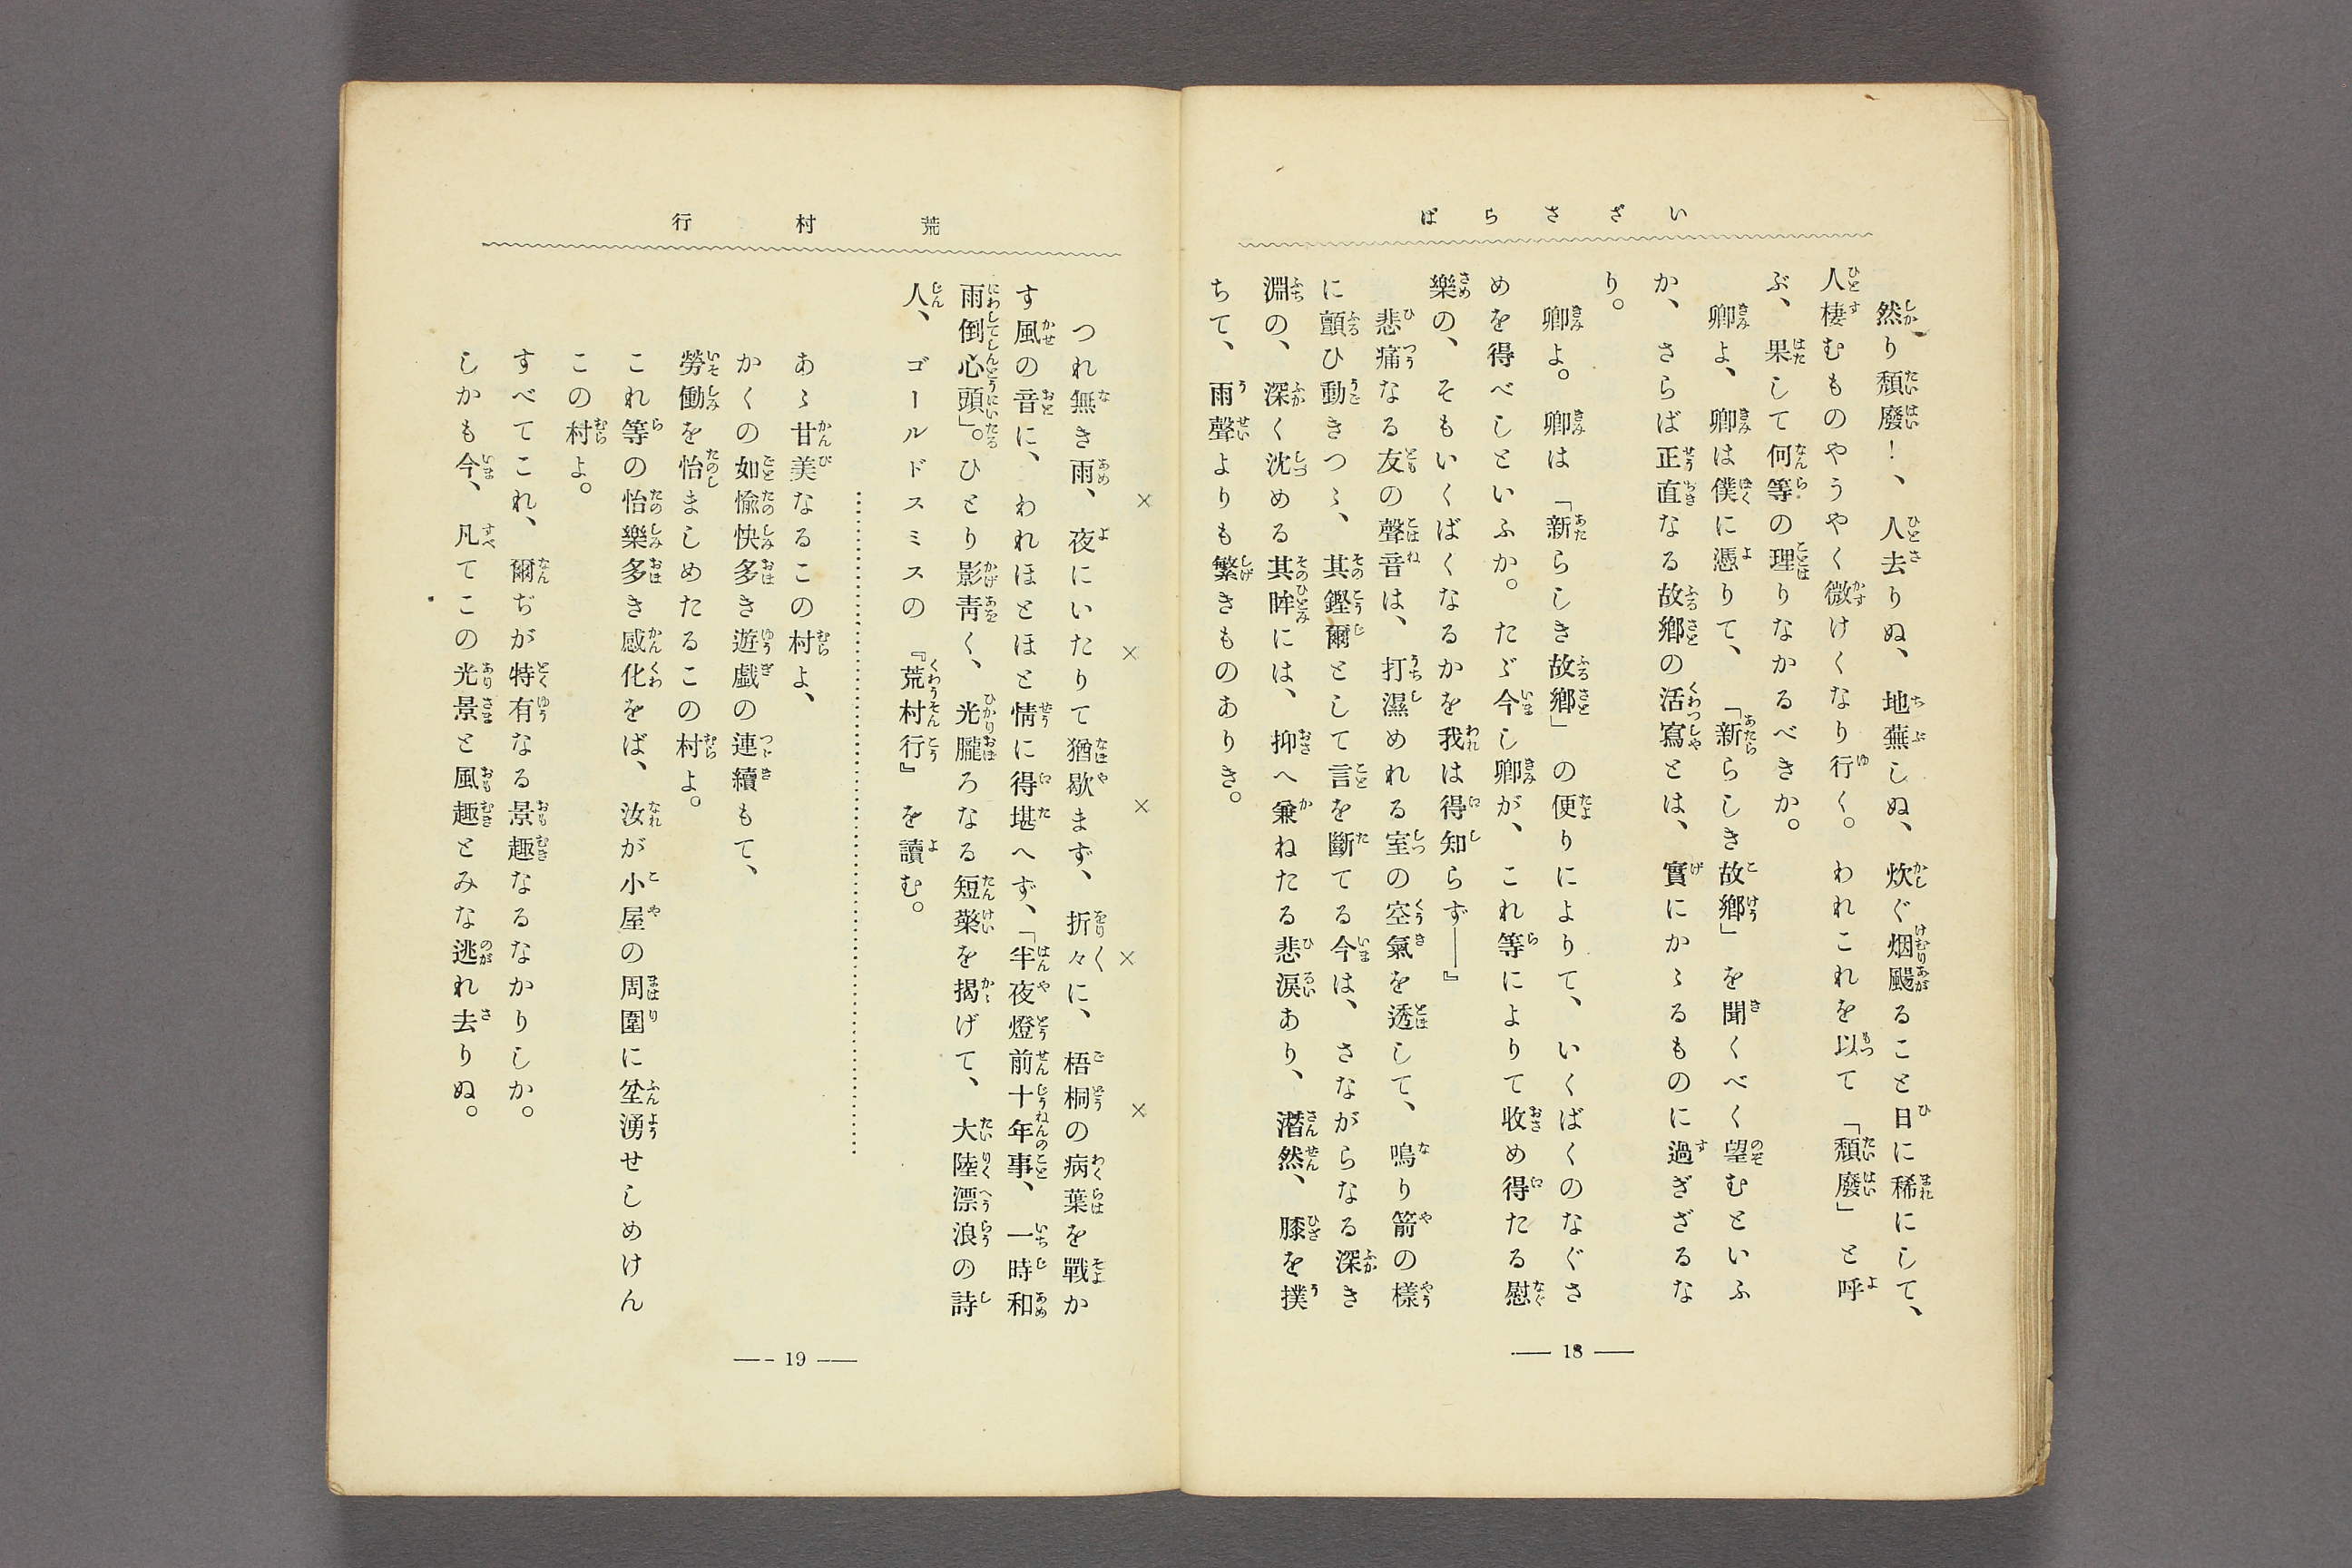 いざさらば
然り頽廢！、人去りぬ、地蕪しぬ、炊ぐ烟颺ること日に稀にして、
人棲むものやうやく微けくなり行く。われこれを以て「頽廢」と呼
ぶ、果して何等の理りなかるべきか。
卿よ、卿は僕に憑りて、「新らしき故鄕」を聞くべく望むといふ
か、さらば正直なる故鄕の活寫とは、實にかゝるものに過ぎざるな
り。
卿よ。卿は「新らしき故鄕」の便りによりて、いくばくのなぐさ
めを得べしといふか。たゞ今し卿が、これ等によりて收め得たる慰
樂の、そもいくばくなるかを我は得知らず――』
悲痛なる友の聲音は、打濕めれる室の空氣を透して、鳴り箭の樣
に顫ひ動きつゝ、其鏗爾として言を斷てる今は、さながらなる深き
淵の、深く沈める其眸には、抑へ兼ねたる悲淚あり、潸然、膝を撲
ちて、雨聲よりも繁きものありき。
― 18 ―
荒村行
× × × × ×
つれ無き雨、夜にいたりて猶歇まず、折々に、梧桐の病葉を戰か
す風の音に、われほとほと情に得堪へず、「半夜燈前十年事、一時和
雨倒心頭」。ひとり影靑く、光朧ろなる短檠を揭げて、大陸漂浪の詩
人、ゴールドスミスの『荒村行』を讀む。
…………………………………………
あゝ甘美なるこの村よ、
かくの如愉快多き遊戲の連續もて、
勞働を怡ましめたるこの村よ。
これ等の怡樂多き感化をば、汝が小屋の周圍に坌湧せしめけん
この村よ。
すべてこれ、爾ぢが特有なる景趣なるなかりしか。
しかも今、凡てこの光景と風趣とみな逃れ去りぬ。
― 19 ―